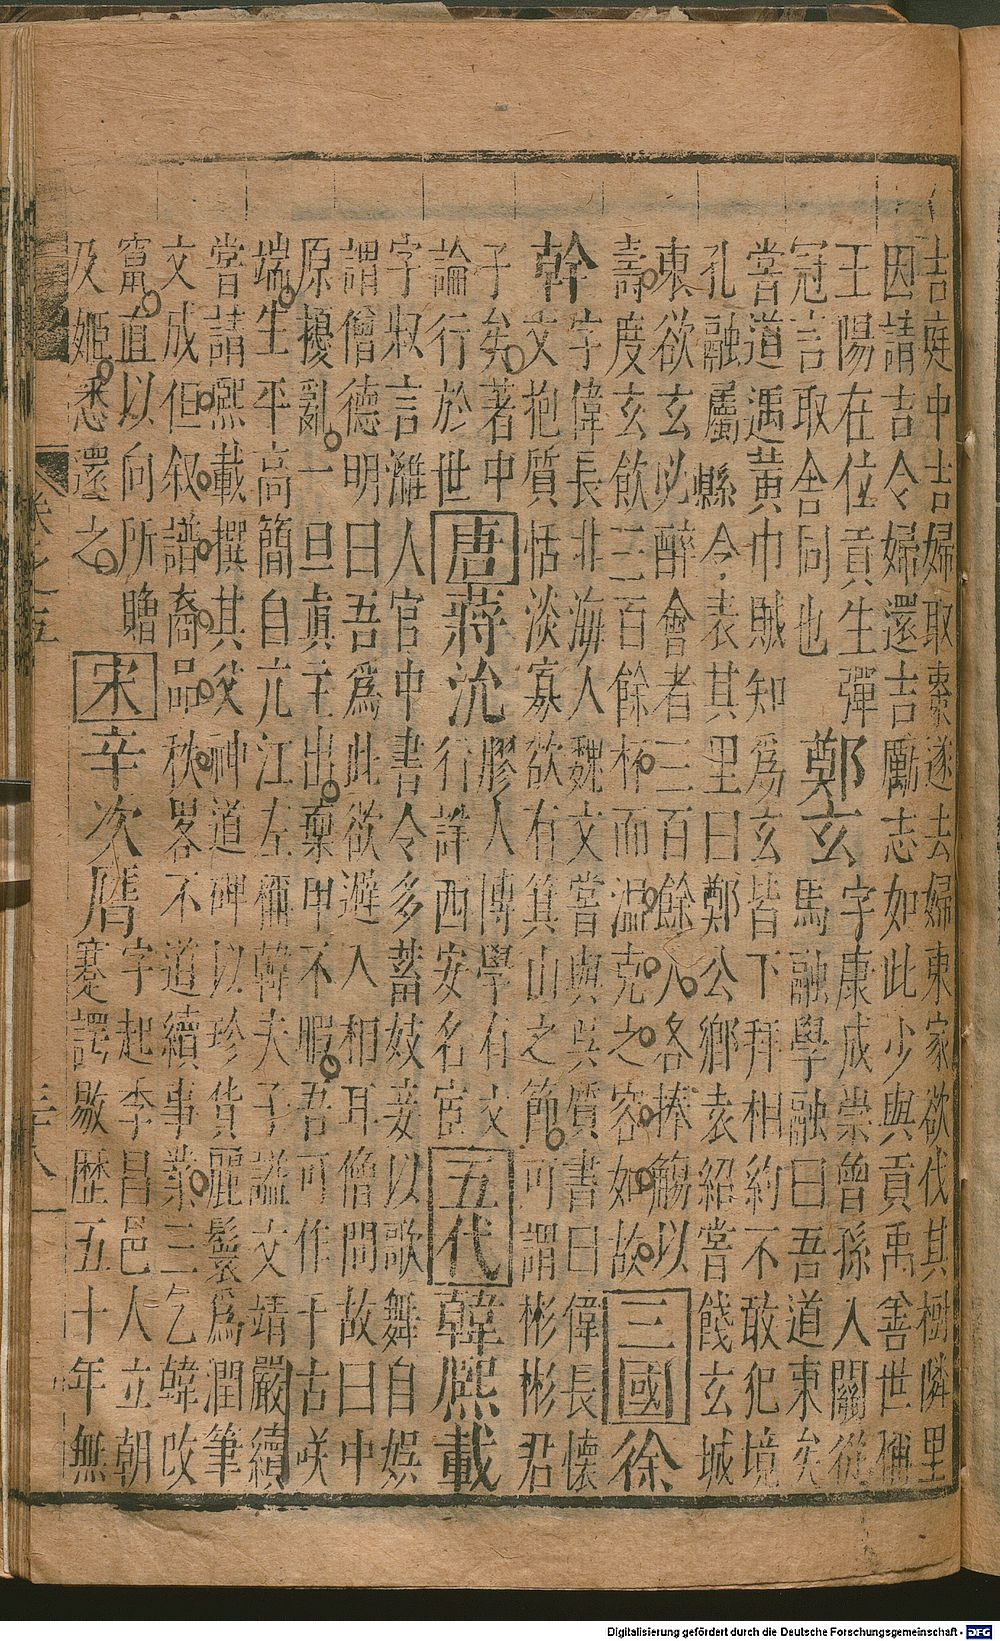 吉庭中吉婦取棗遂去婦東家欲伐其樹隣里
因請吉令婦還吉勵志如此少與貢禹善世稱
王陽在位貢生彈
冠言取舍同也
鄭玄
字康成崇曾孫入關從
馬融學融曰吾道東矣
嘗道遇黃巾賊知爲玄皆下拜相約不敢犯境
孔融屬縣令表其里曰鄭公鄉袁紹嘗餞玄城
東欲玄必醉會者三百餘人各捧觴以
壽度玄飲三百餘杯而溫克之容如故
三國徐
幹
字偉長非海人魏文嘗與吳質書曰偉長懷
文抱質恬淡寡欲有箕山之節可謂彬彬君
子矣著中
論行於世
唐蔣沇
膠人博學有文
行誼西安名宦
五代韓熙載
字叔言濰人官中書令多蓄妓妾以歌舞自娛
謂僧德明曰吾爲此欲避入相耳僧問故曰中
原擾亂一旦眞主出棄甲不暇吾可作千古咲
端生平高簡自亢江左稱韓夫子謚文靖嚴續
嘗請熙載撰其父神道碑以珍貨麗鬟爲潤筆
文成但叙譜裔品秩畧不道續事業三乞韓改
竄直以向所贈
及姬悉還之
宋辛次膺
字起李昌邑人立朝
蹇諤敭歷五十年無
卷之五
三八
Digitalisierung gefördert durch die Deutsche Forschungsgemeinschaft - DFG